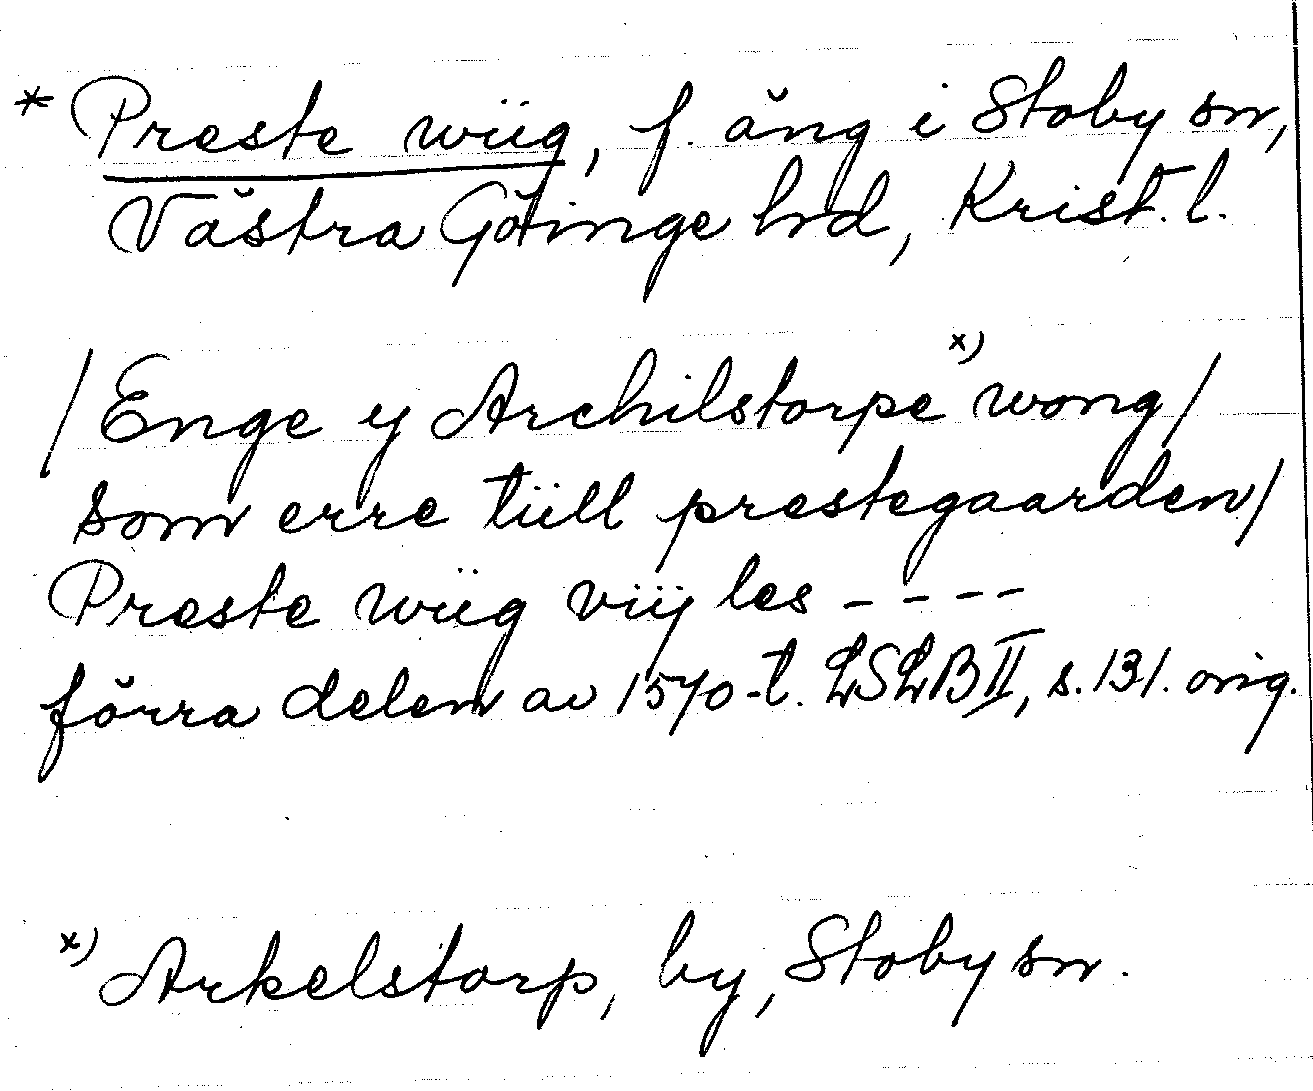 * Preste wiig, f. äng i Stoby sn,
Västra Göinge hrd, Krist. l.
/Enge ij Archilstorpe x) wong/
som erre tiill prestegaarden/
Preste wiig viij les - - - -
förra delen av 1570-t. LSLB II, s. 131. orig.
x) Arkelstorp, by, Stoby sn.